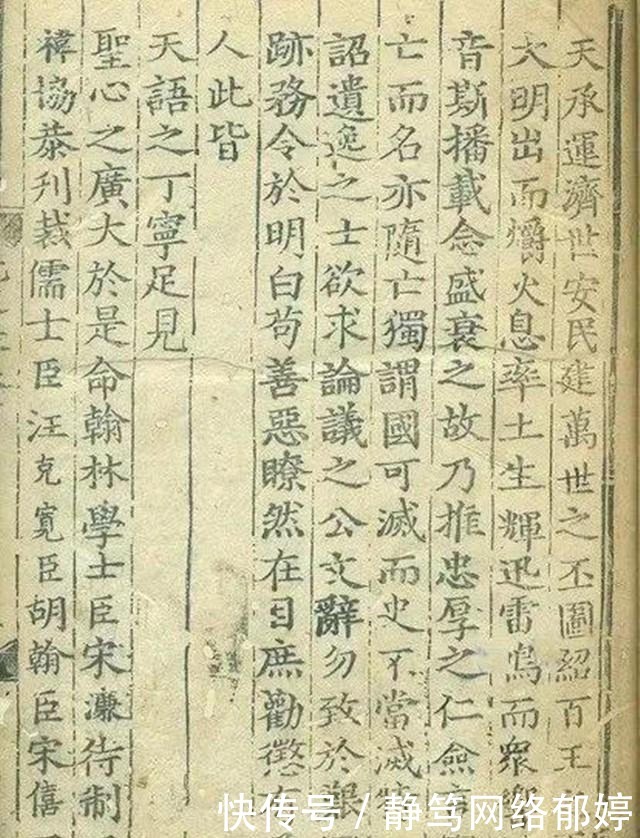 天承運濟世安民建萬世之丕圖紹百王
大明出而爝火息率土生輝迅雷鳴而衆
音斯播載念盛衰之故乃推忠厚之仁僉
亡而名亦隨亡獨謂國可滅而史不當滅
詔遺逸之士欲求論議之公文辭勿致於艱
跡務令於明白苟善惡瞭然在目庶勸懲
人此皆
天語之丁寧足見
聖心之廣大於是命翰林學士臣宋濂待制
禕協恭刋裁儒士臣汪克寬臣胡翰臣宋僖
快传号 / 静笃网络郁婷